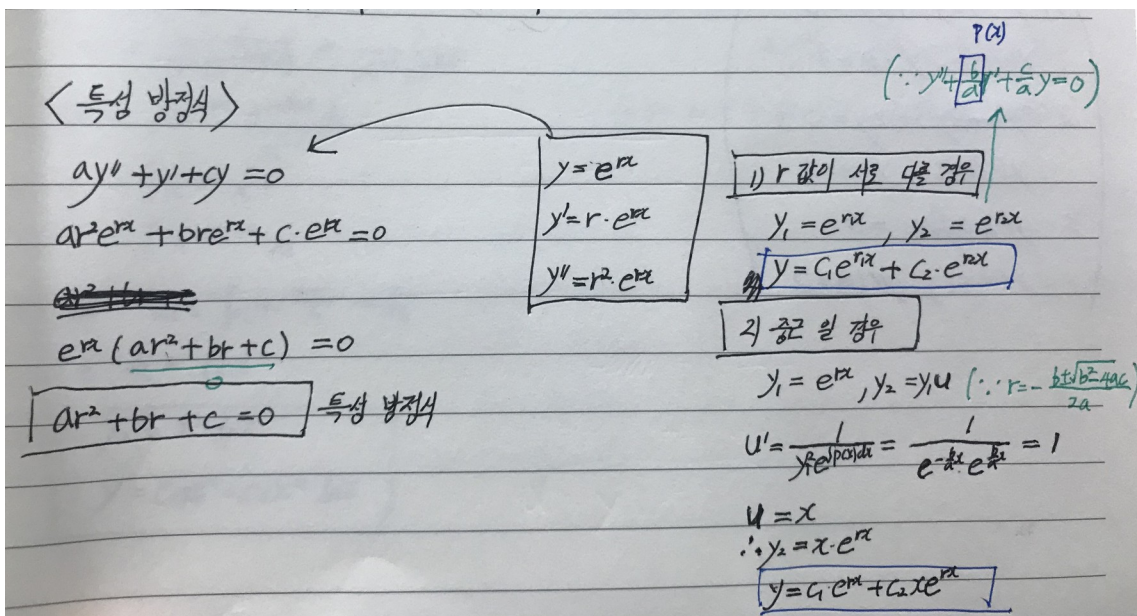 <특성 방정식>
ay'' + y' + cy = 0
ar²e^{rx} + bre^{rx} + c·e^{rx} = 0
e^{rx} (ar² + br + c) = 0
0
ar² + br + c = 0 특성 방정식
y = e^{rx}
y' = r·e^{rx}
y'' = r²·e^{rx}
P(x)
(∵ y'' + b/a y' + c/a y = 0)
1) r 값이 서로 다를 경우
y₁ = e^{r₁x}, y₂ = e^{r₂x}
y = C₁e^{r₁x} + C₂·e^{r₂x}
2) 중근 일 경우
y₁ = e^{rx}, y₂ = y₁u (∵ r = - b±√b²-4ac / 2a)
u' = 1 / y₁²e^{∫p(x)dx} = 1 / e^{-b/a x}·e^{b/a x} = 1
u = x
∴ y₂ = x·e^{rx}
y = C₁·e^{rx} + C₂xe^{rx}